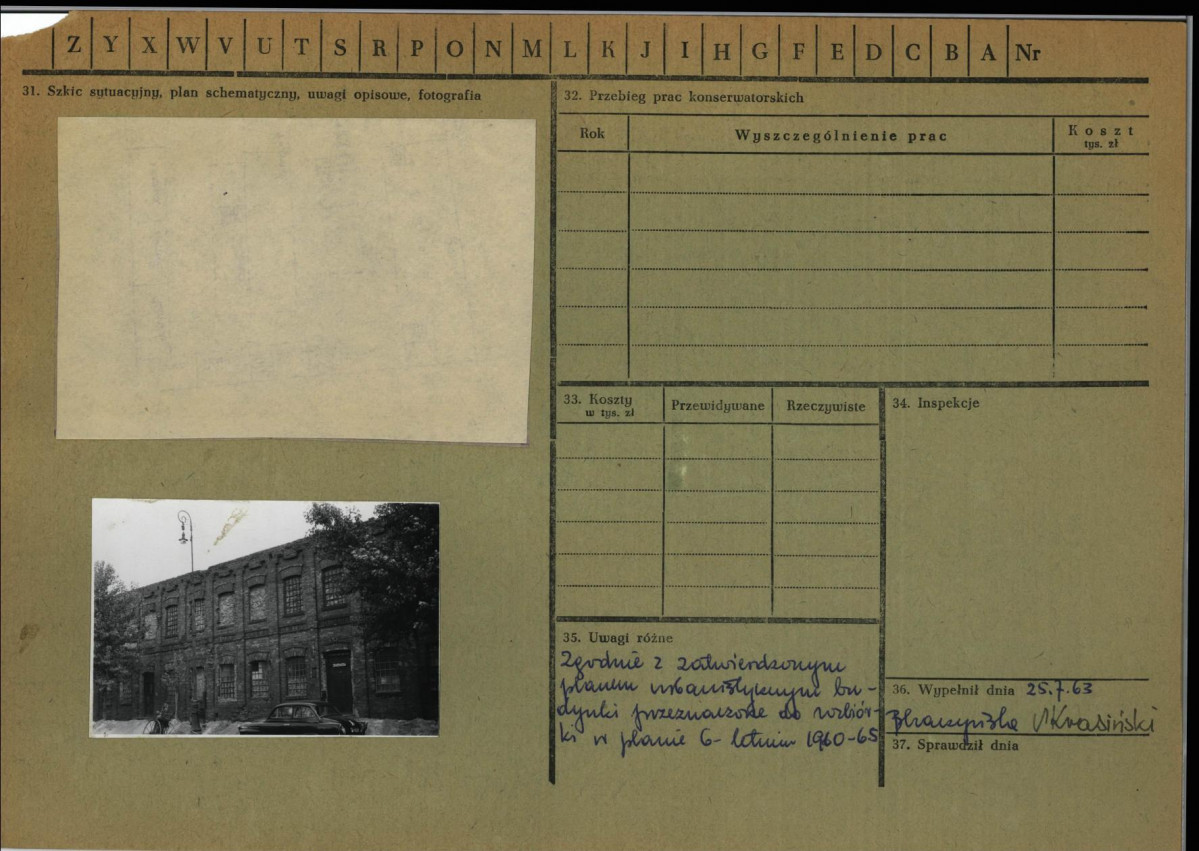 Z Y X W V U T S R P O N M L K J I H G F E D C B A Nr
31. Szkic sytuacyjny, plan schematyczny, uwagi opisowe, fotografia
32. Przebieg prac konserwatorskich
Rok
Wyszczególnienie prac
Koszt
tys. zł
33. Koszty
w tys. zł
Przewidywane
Rzeczywiste
34. Inspekcje
35. Uwagi różne
Zgodnie z zatwierdzonym
planem urbanistycznym bu-
dynki przeznaczone do rozbiór-
ki w planie 6-letnim 1960-65
36. Wypełnił dnia 25.7.63
Krasiński
37. Sprawdził dnia